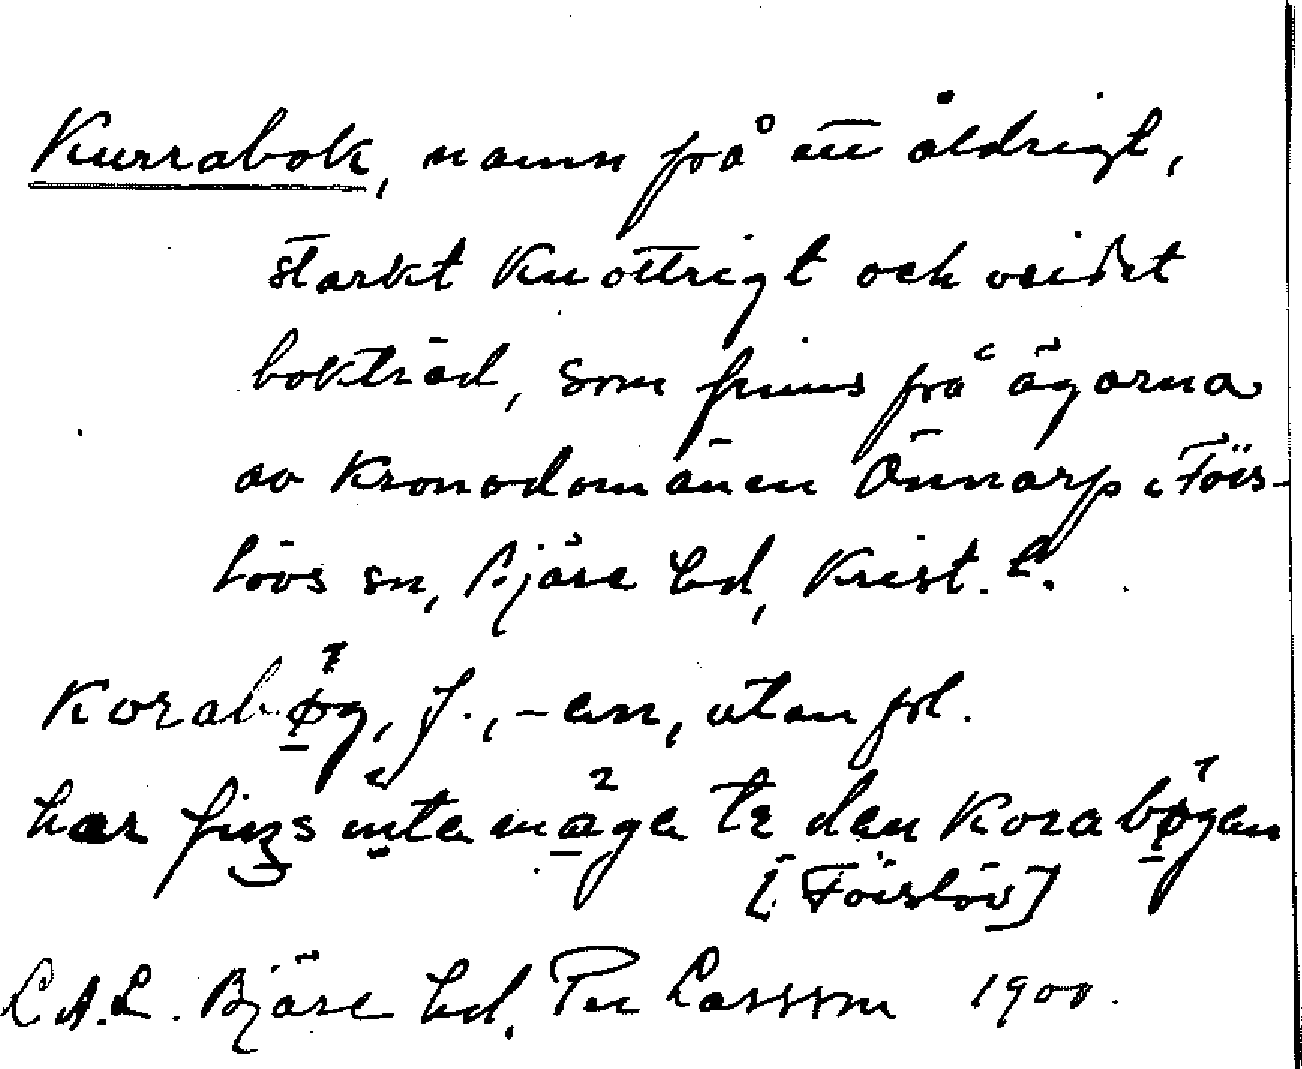 Kurrabok, namn på ett åldrigt,
starkt knottrigt och vridet
bokträd, som finns på ägorna
av Kronodomänen Önnarp i Förs-
lövs sn, Bjäre hd, Krist. l.
Korabøg, f., -en, utan pl.
har finʒs inte møga te den Korabøgen
[Förslöv]
L.A.L. Bjäre hd, Per Larsson 1900.